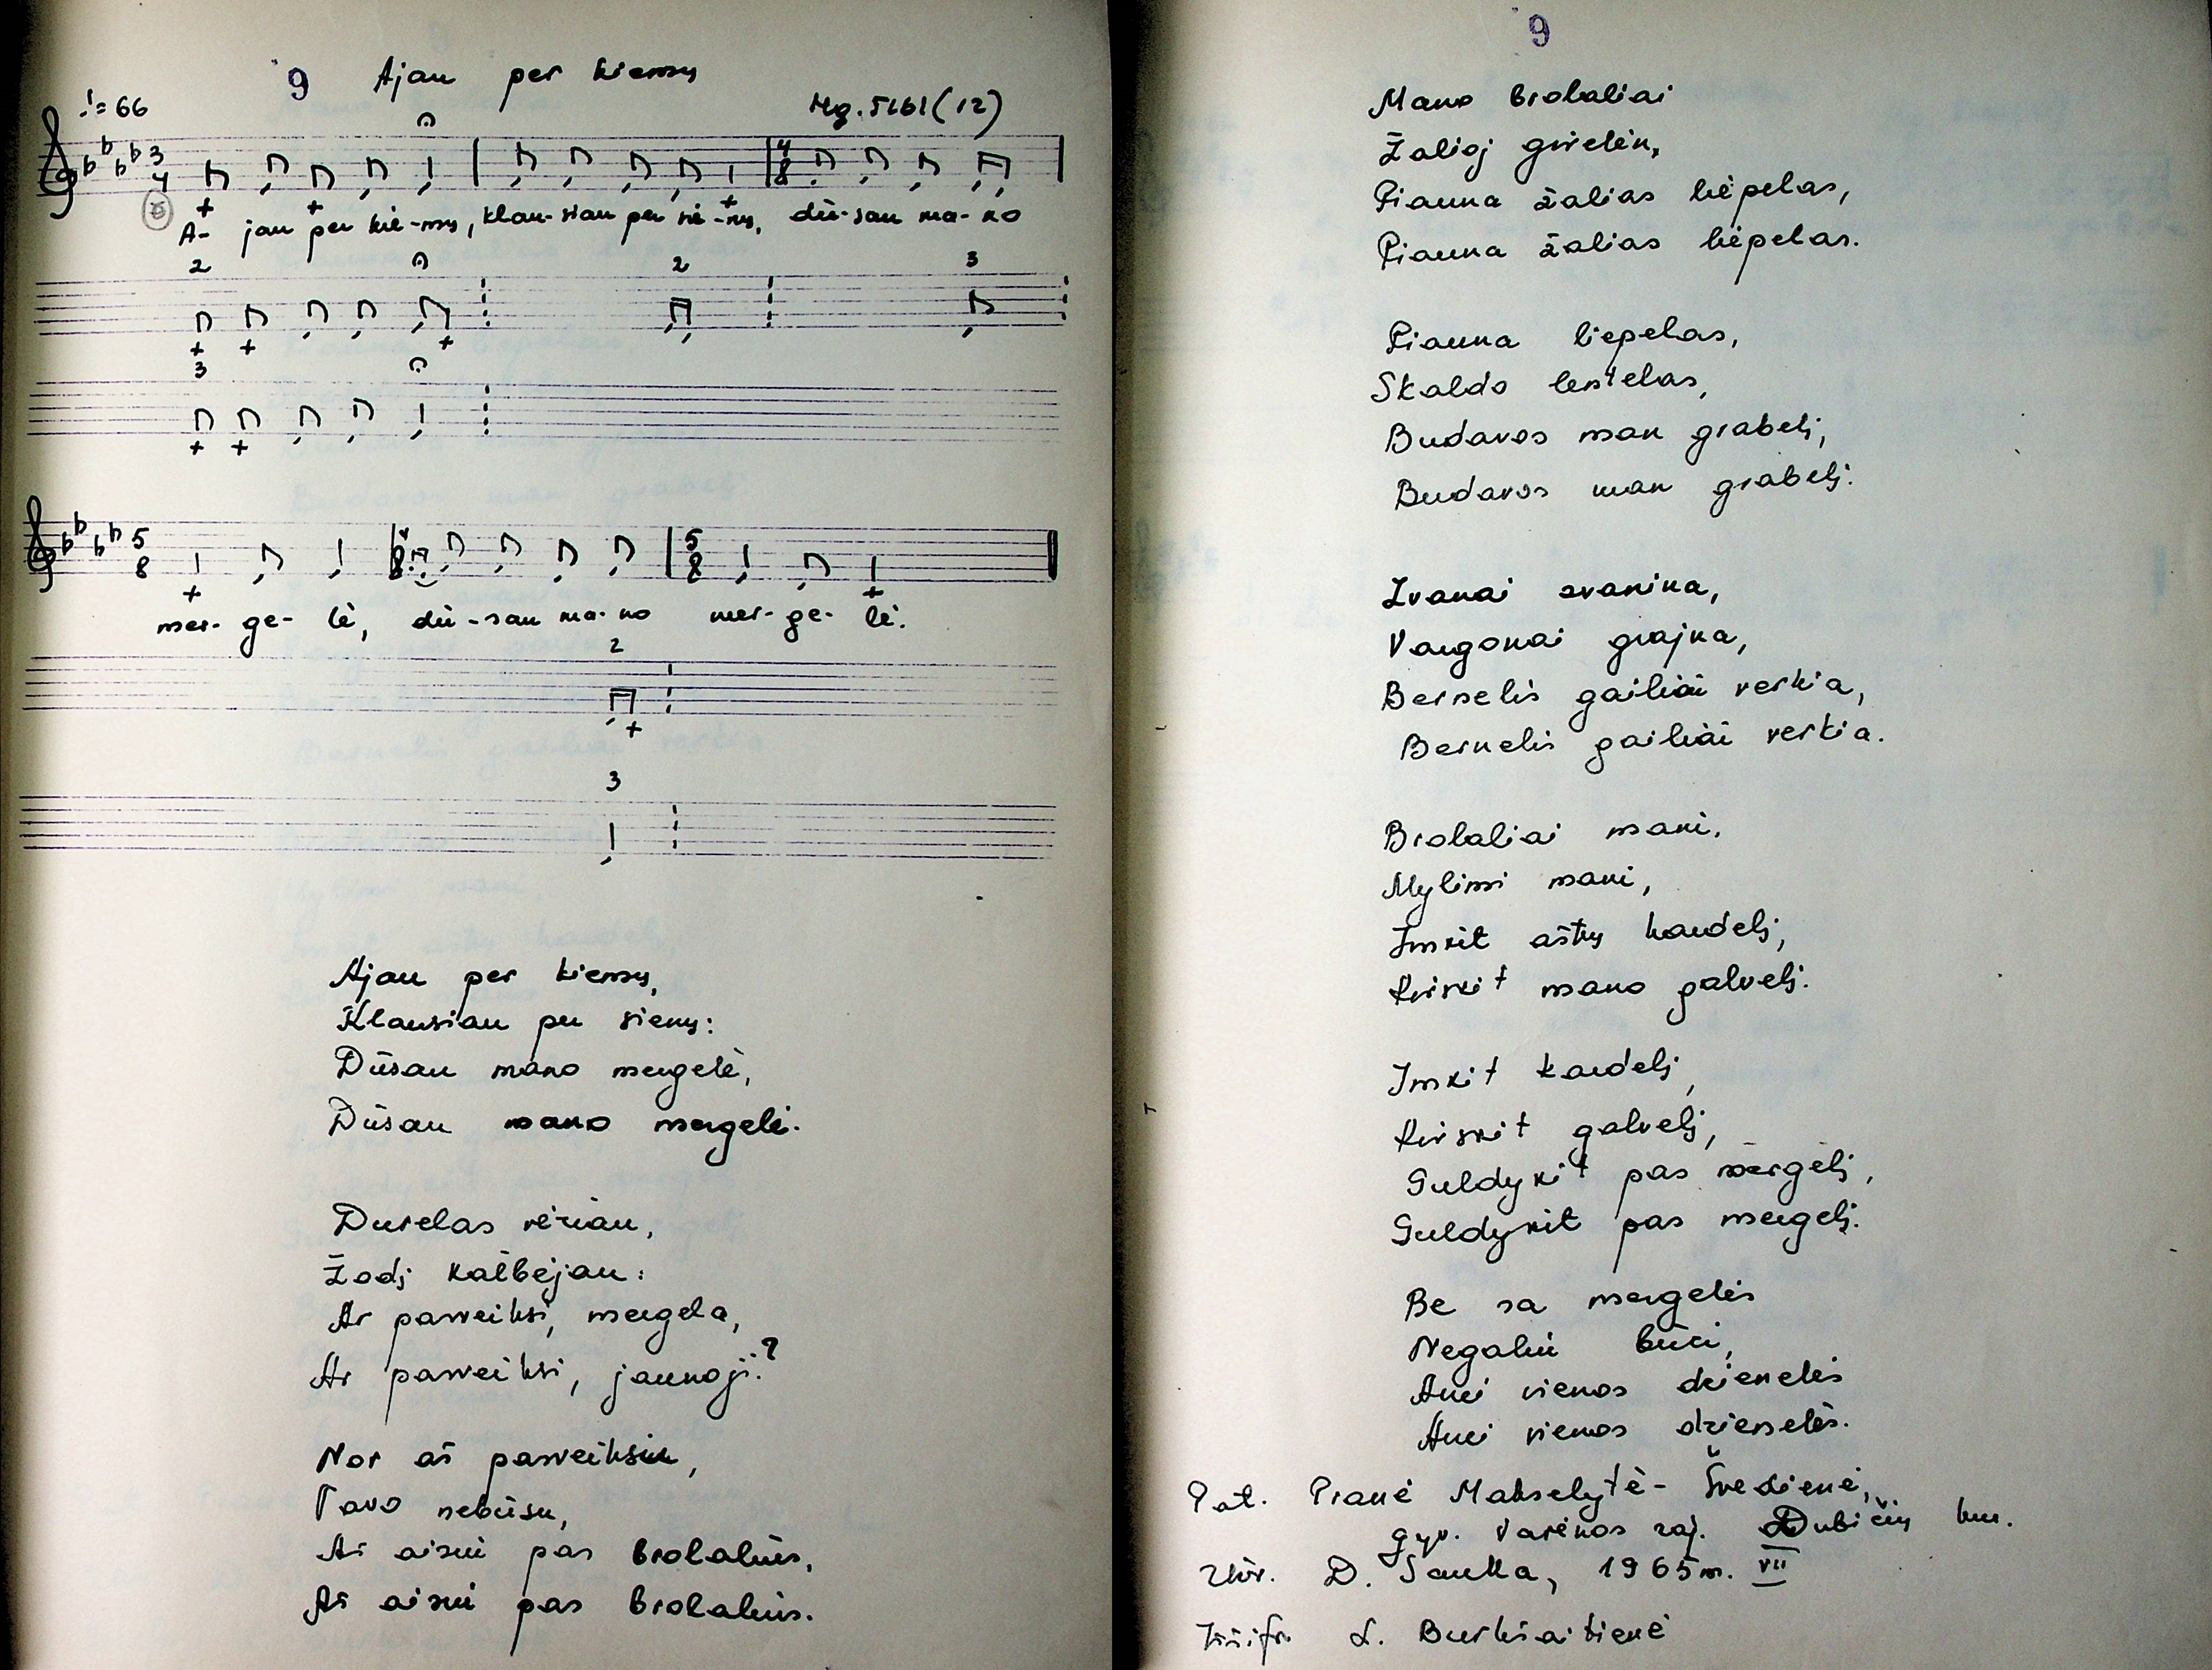 9 Ajau per kiemų
♩=66
Mg. 5161 (12)
3
4
4
8
A- jau per kie-mų, klau-siau per sie-nų, dū-sau ma-no
2 2 3
3
5
8
5
8
mer- ge- lė, dū-sau ma-no mer-ge- lė.
2
3
Ajau per kiemų,
Klausiau per sienų:
Dūsau mano mergelė,
Dūsau mano mergelė.
Durelas vėriau,
Žodį kalbėjau:
Ar pasveiksi, mergela,
Ar pasveiksi, jaunoji?
Nor aš pasveiksiu,
Tavo nebūsu,
Aš aisiu pas brolalius,
Aš aisiu pas brolalius.
9
Mano brolaliai
Žalioj girelėn,
Piauna žalias liepelas,
Piauna žalias liepelas.
Piauna liepelas,
Skaldo lentelas,
Budavos man grabelį,
Budavos man grabelį.
Zvanai zvanina,
Vargonai grajna,
Bernelis gailiai verkia,
Bernelis gailiai verkia.
Brolaliai mani,
Mylimi mani,
Imkit aštrų kardelį,
Kirskit mano galvelį.
Imkit kardelį,
Kirskit galvelį,
Guldykit pas mergelį,
Guldykit pas mergelį.
Be sa mergelės
Negaliu būci,
Anei vienos dzienelės
Anei vienos dzienelės.
Pat. Pranė Makselytė- Švedienė,
gyv. Varėnos raj. Dubičių km.
Užr. D. Sauka, 1965 m. VII
Iššifr. L. Burkšaitienė